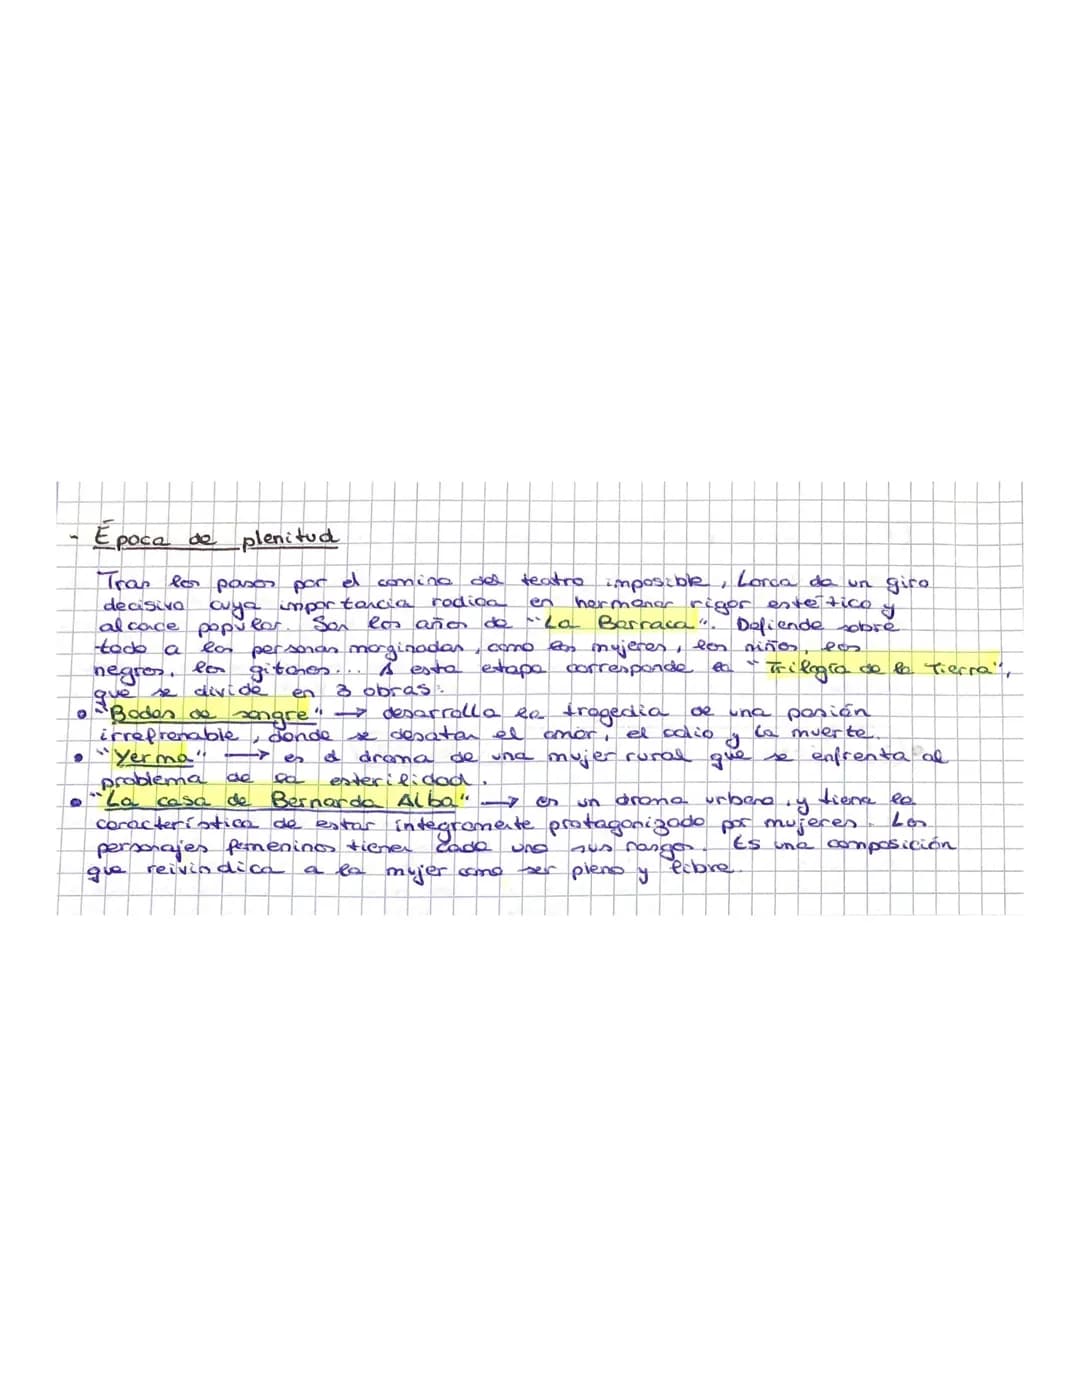 - Época de plenitud
Tras los pasos por el camino del teatro imposible, Lorca da un giro
decisivo cuya importancia radica en hermanar rigor estético y
alcance popular. Son los años de "La Barraca". Defiende sobre
todo a las personas marginadas, como las mujeres, los niños, los
negros, los gitanos... A esta etapa corresponde la "Trilogía de la Tierra",
que se divide en 3 obras:
• "Bodas de sangre" → desarrolla la tragedia de una pasión
irrefrenable, donde se desatan el amor, el odio y la muerte.
• "Yerma" → es el drama de una mujer rural que se enfrenta al
problema de la esterilidad.
• "La casa de Bernarda Alba" → es un drama urbano, y tiene la
característica de estar íntegramente protagonizado por mujeres. Los
personajes femeninos tienen cada uno sus rasgos. Es una composición
que reivindica a la mujer como ser pleno y libre.